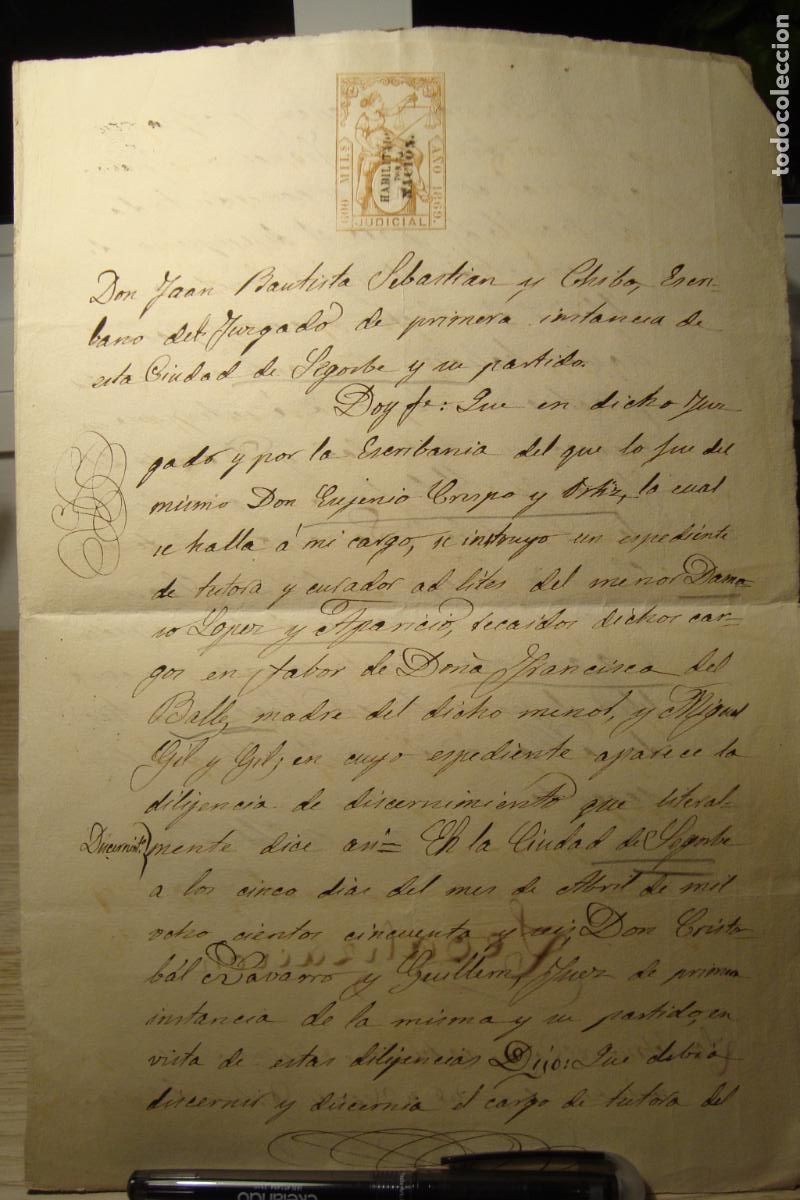 todocoleccion
600 MIL.s
AÑO 1869.
HABILITADO
POR LA
NACION.
JUDICIAL
Don Juan Bautista Sebastian y Chiba, Escri-
bano del Juzgado de primera instancia de
esta Ciudad de Segorbe y su partido.
Doy fe: Que en dicho Juz
gado y por la Escribania del que lo fue del
mismo Don Eujenio Crespo y Ortiz, la cual
se halla á mi cargo, se instruyo un espediente
de tutora y curador ad lites del menor Dama-
so Lopez y Aparicio, recaidos dichos car-
gos en fabor de Doña Francisca del
Balle, madre del dicho menor, y Miguel
Gil y Gil; en cuyo espediente aparece la
dilijencia de discernimiento que literal-
Discernim.to
mente dice asi= En la Ciudad de Segorbe
a los cinco dias del mes de Abril de mil
ocho cientos cincuenta y seis, Don Cristo-
bál Navarro y Guillem, Juez de primera
instancia de la misma y su partido, en
vista de estas dilijencias Dijo: Que debia
discernir y discernia el cargo de tutora del